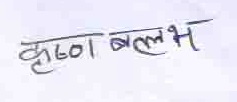 कृष्ण बल्लभ